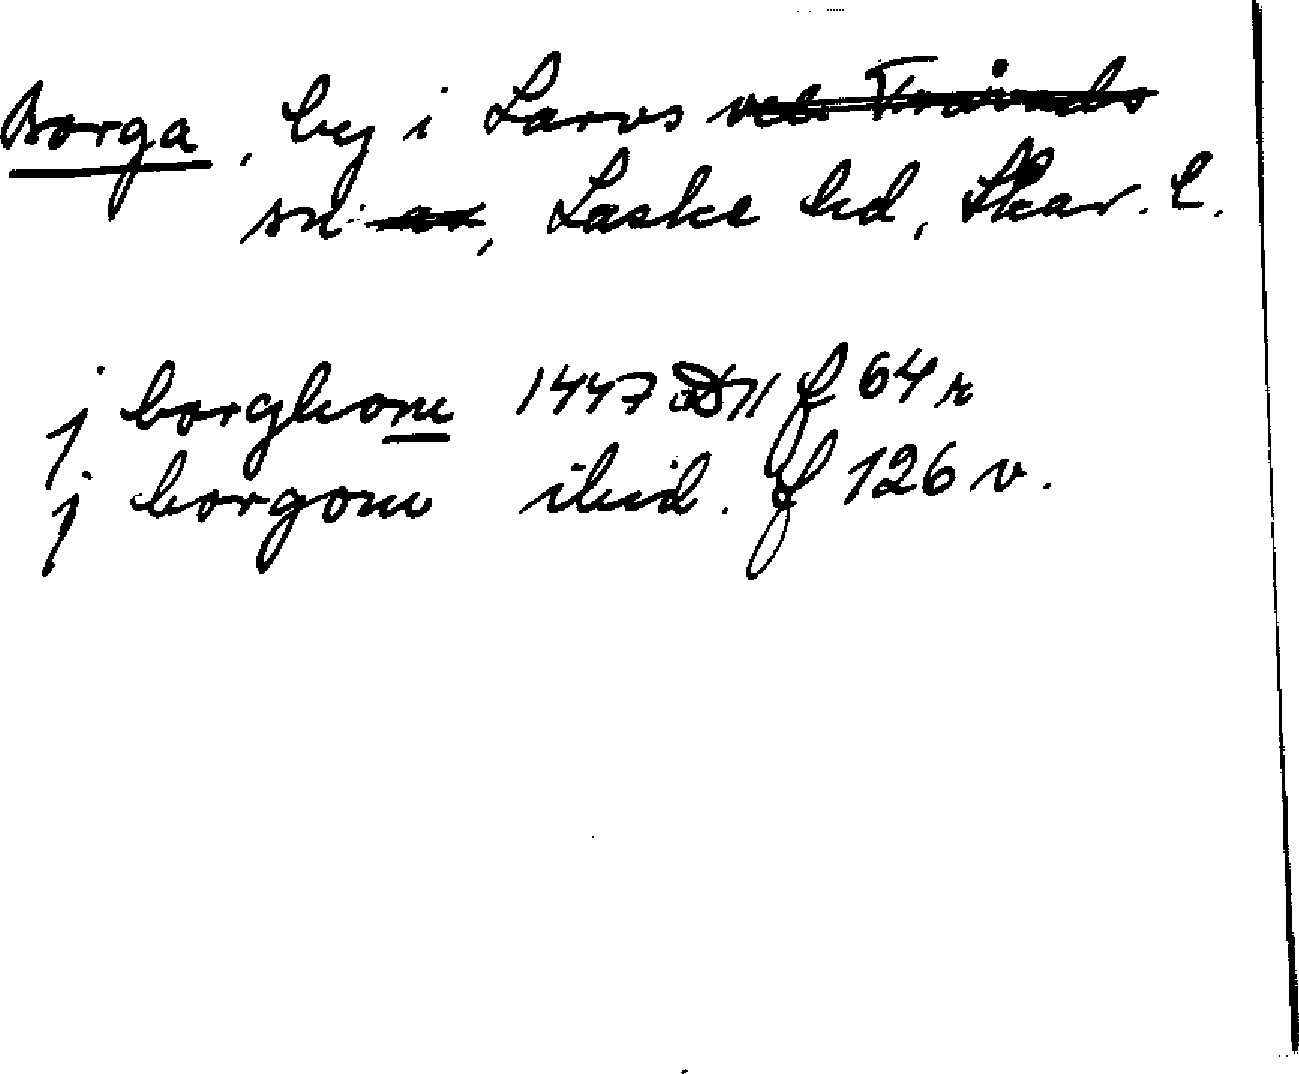 Borga, by i Larvs och Trävads
sn ar, Laske hd, Skar. l.
j borghom 1447 D 11 f 64 r
j borgom ibid. f 126 v.